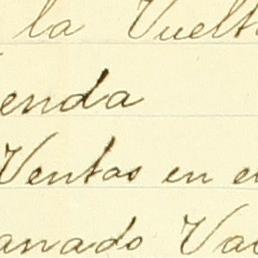 la Vuelt
enda
Ventas en e
anado Va